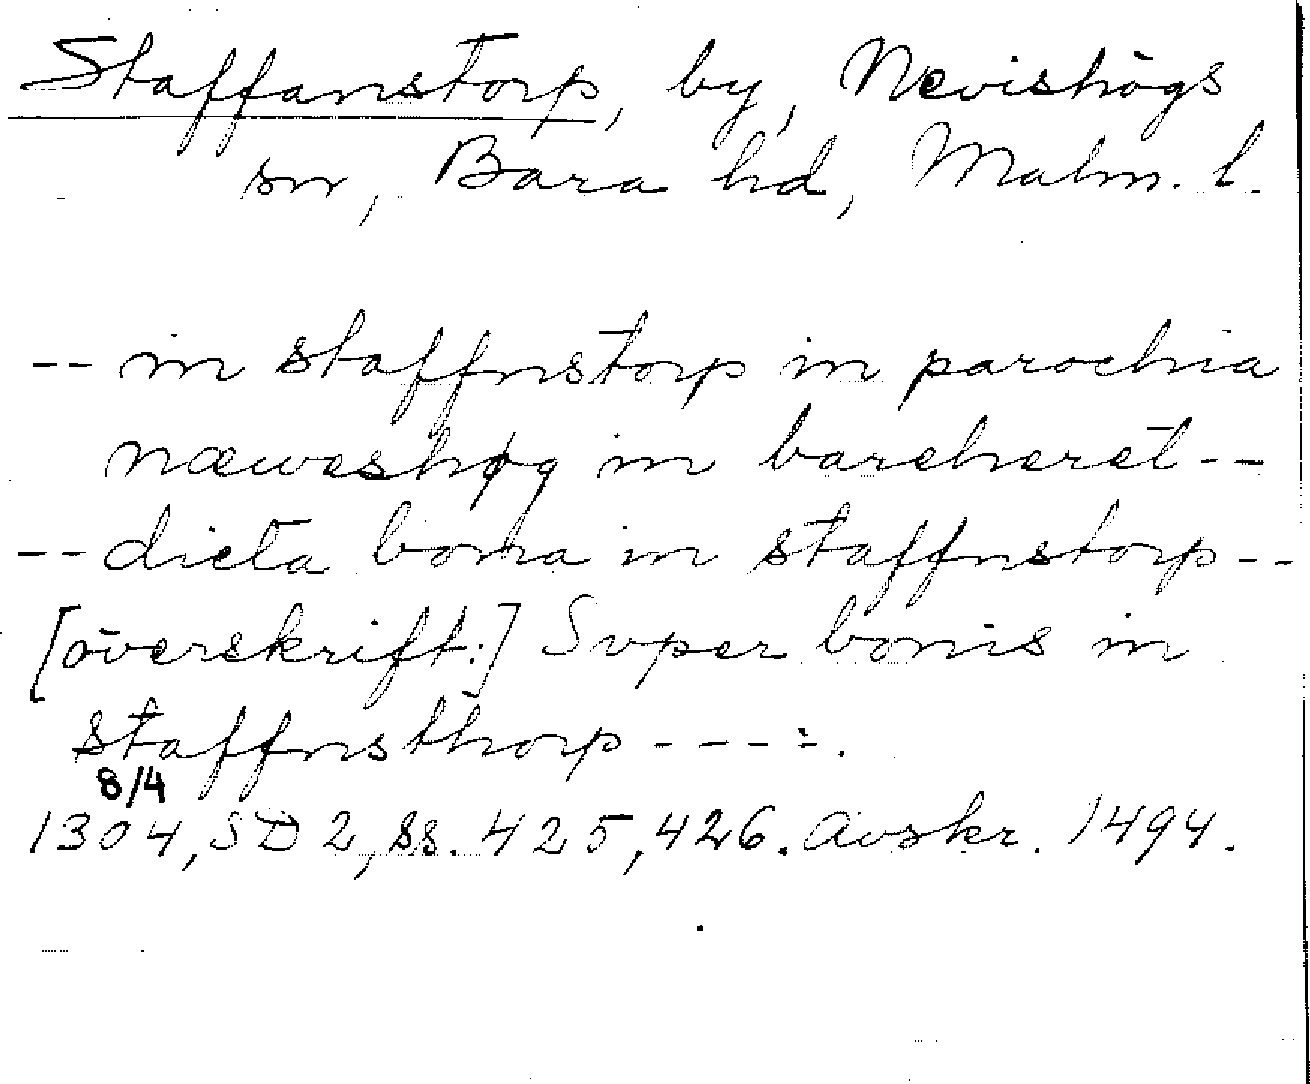 Staffanstorp, by, Nevishögs
sn, Bara hd, Malm. l.
-- in staffnstorp in parochia
næweshøg in bareheret--
--dicta bona in staffnstorp--
[överskrift:] Svper bonis in
staffnsthorp ----.
8/4
1304, SD 2, ss. 425, 426. Avskr. 1494.